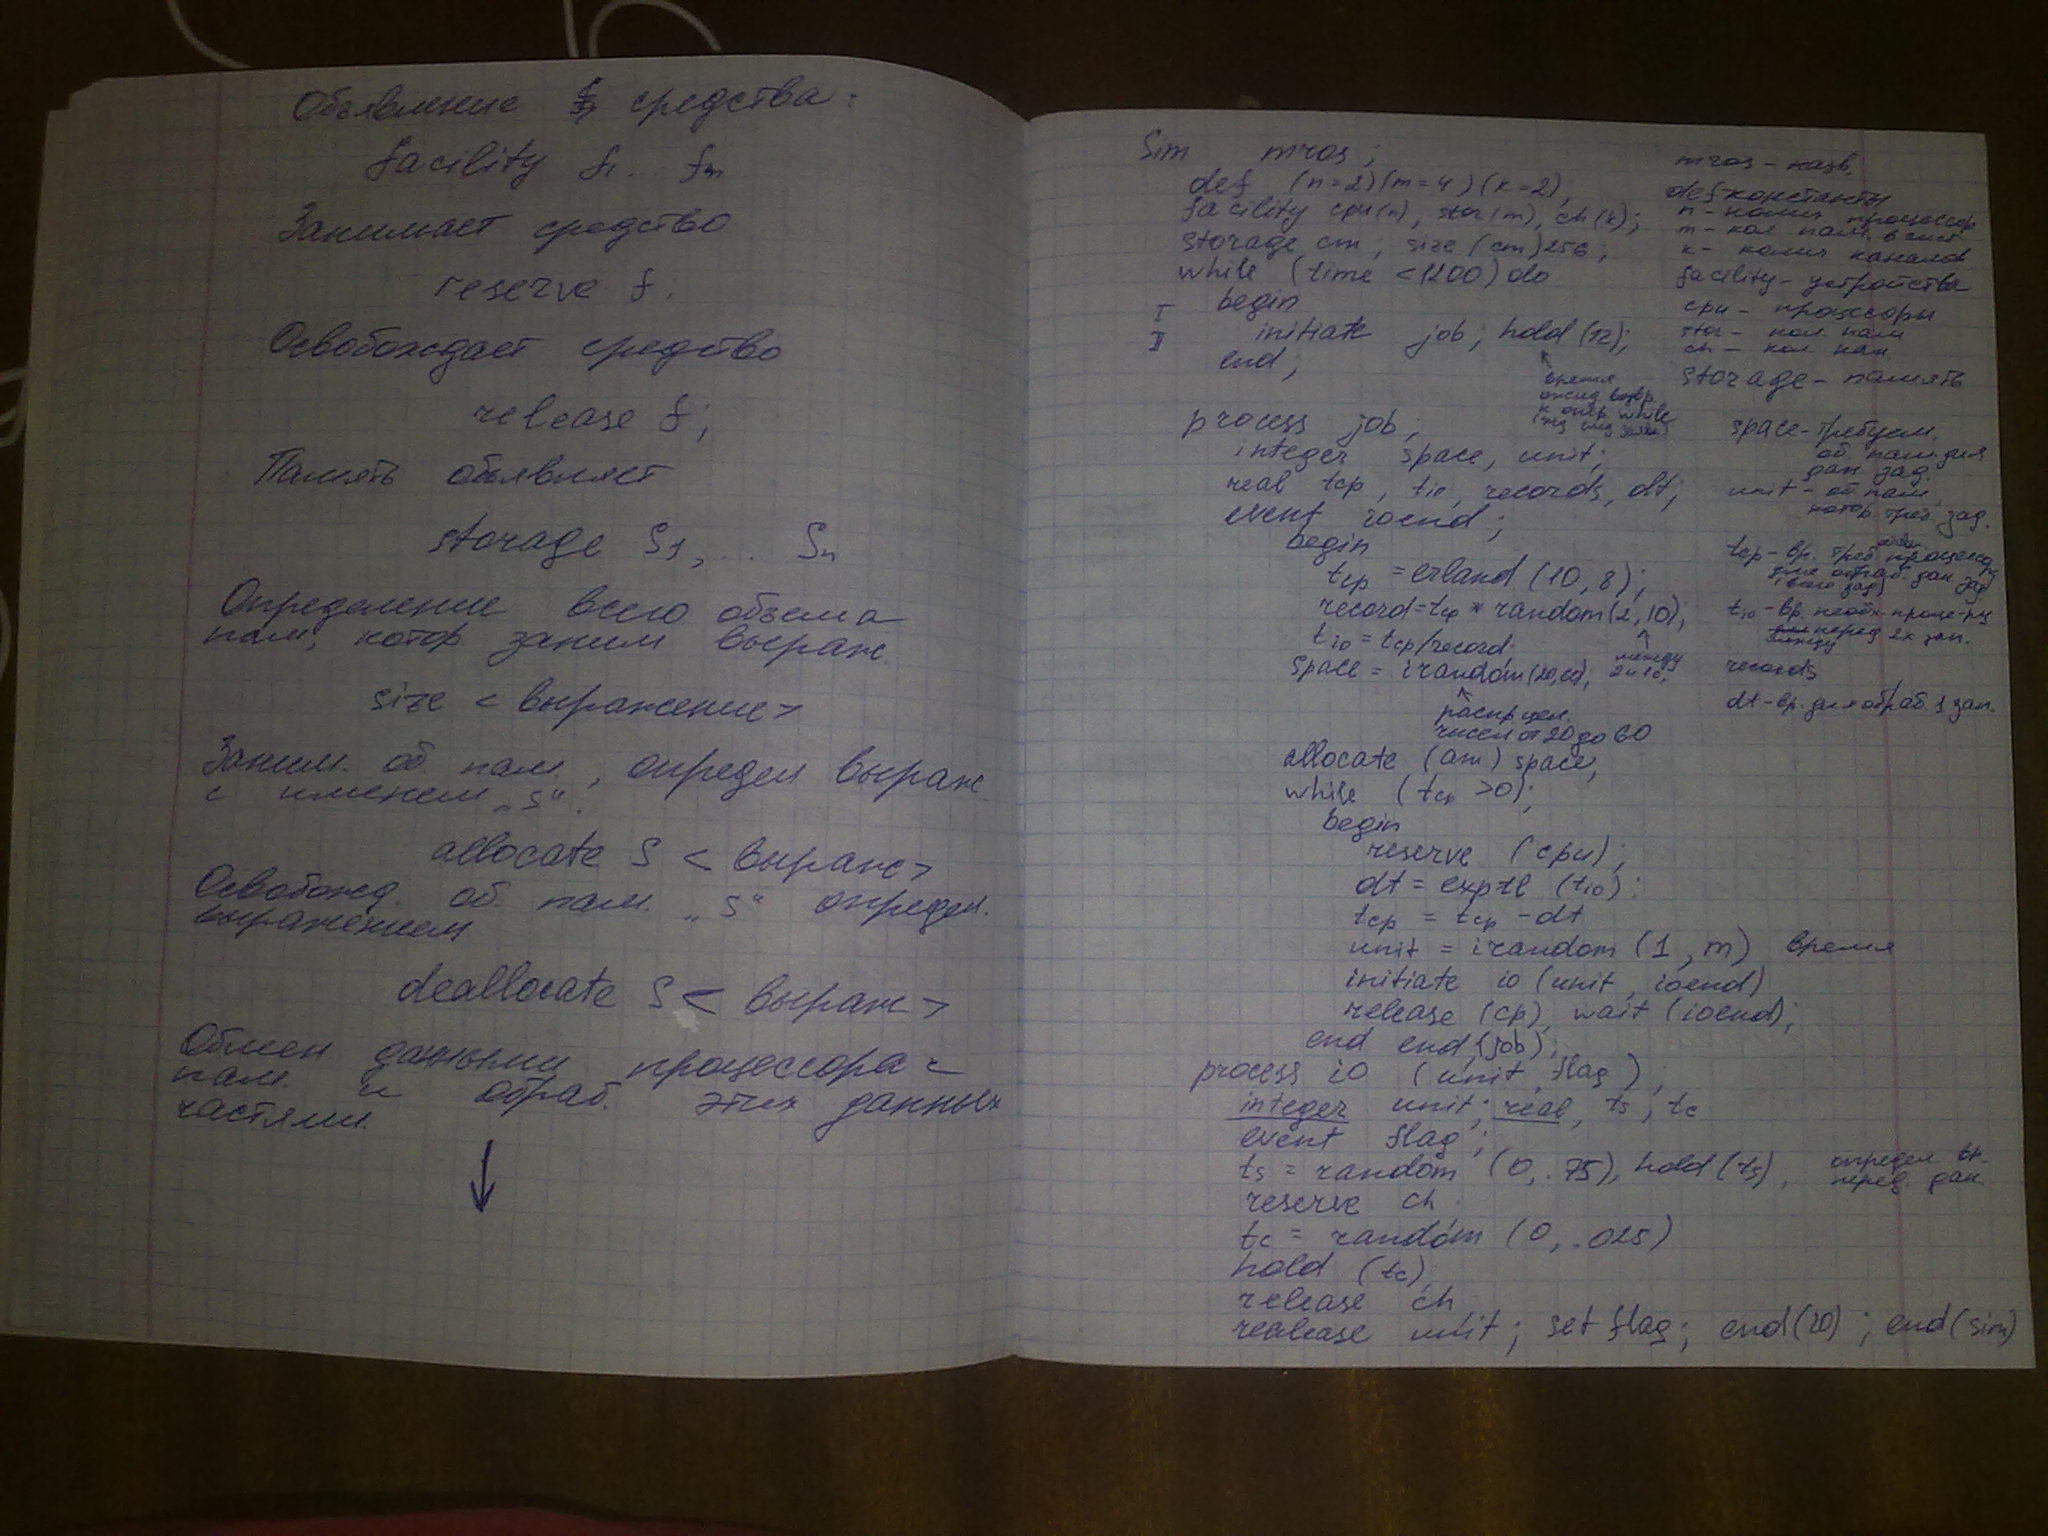 Объявление средства:
facility f1 ... fm
Занимает средство
reserve f.
Освобождает средство
release f;
Память объявляет
storage S1, ... Sn
Определение всего объема
пам, котор. заним выраж.
size < выражение>
Заним. об. пам., определ выраж
с именем „S“.
allocate S < выраж>
Освобожд. об. пам. „S“ определ.
выражением
deallocate S < выраж>
Обмен данными процессора с
пам. и обраб. этих данных
частями.
Sim mros;
def (n=2)(m=4)(k=2);
facility cpu(n), stor(m), ch(k);
storage cm; size (cm)256;
while (time <1200) do
I begin
II initiate job; hold (12);
end;
время
ожид возвр.
к опер. while
process job;
integer space, unit;
real tcp, tio, records, dt;
event ioend;
begin
tcp = erland (10, 8);
record=tcp * random(2, 10);
tio = tcp/record.
между
2 и 10,
space = irandom(20,60),
чисел от 20 до 60
allocate (am) space,
while (tcp >0);
begin
reserve (cpu);
dt = exptl (tio):
tcp = tcp - dt
unit = irandom (1, m) время
initiate io (unit, ioend)
release (cp), wait (ioend);
end end (job);
process io (unit, flag),
integer unit; real, ts, tc
event flag;
ts = random (0, .75), hold (ts), определ вр.
перед. дан.
reserve ch
tc = random (0, .025)
hold (tc),
release ch
realease unit; set flag; end(20); end(sim)
mros - назв.
def константы
n - колич процессор
m - кол пам. в сист
k - колич каналов
facility - устройства
cpu - процессоры
stor - кол. пам
ch - кол. кан.
storage - память
space - требуем.
об. пам. для
дан. зад.
unit - об пам,
котор. треб. зад.
tcp - вр. треб процессору
для обраб. дан. зад
tio - вр. необх. проце-ру
между перед 2х зап.
records
dt - вр. для обраб. 1 зап.